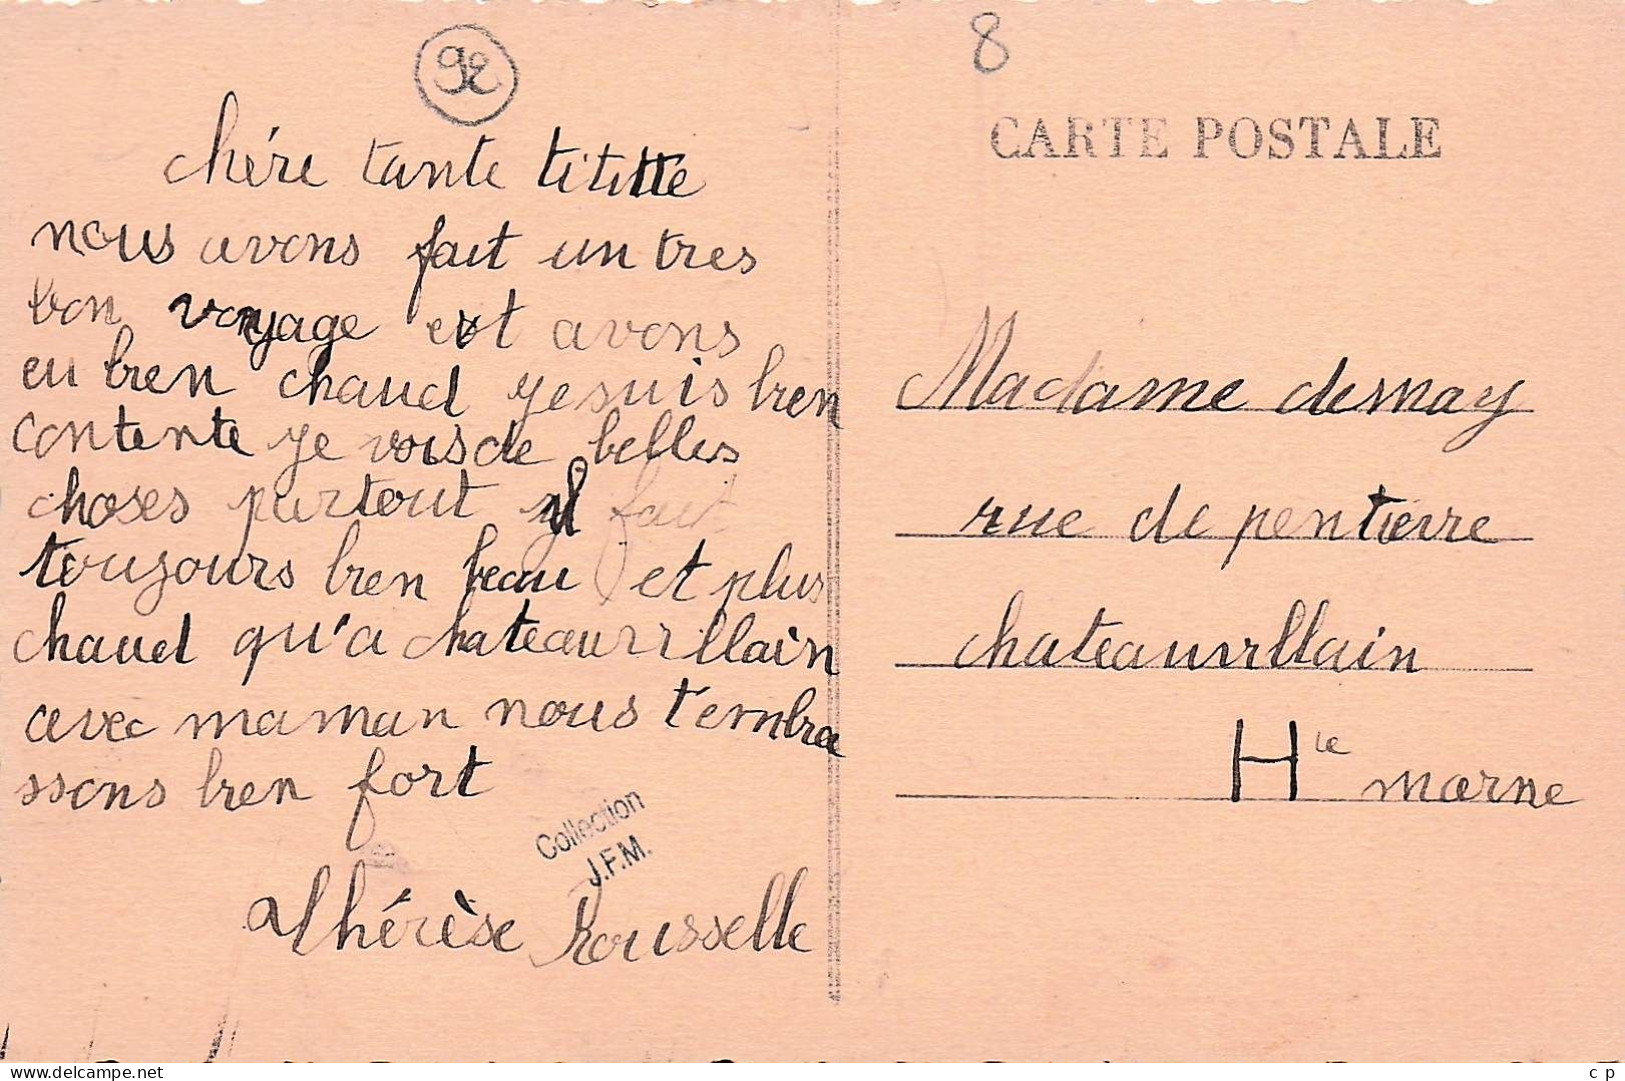 92
chére tante titite
nous avons fait un tres
bon voyage et avons
eu bien chaud je suis bien
contente je vois de belles
choses partout il fait
toujours bien beau et plus
chaud qu'a chateauvillain
avec maman nous t'embra
ssons bien fort
Collection
J.F.M.
Thérèse Rousselle
8
CARTE POSTALE
Madame desmay
rue de pentièvre
chateauvillain
Hte marne
delcampe.net
c p